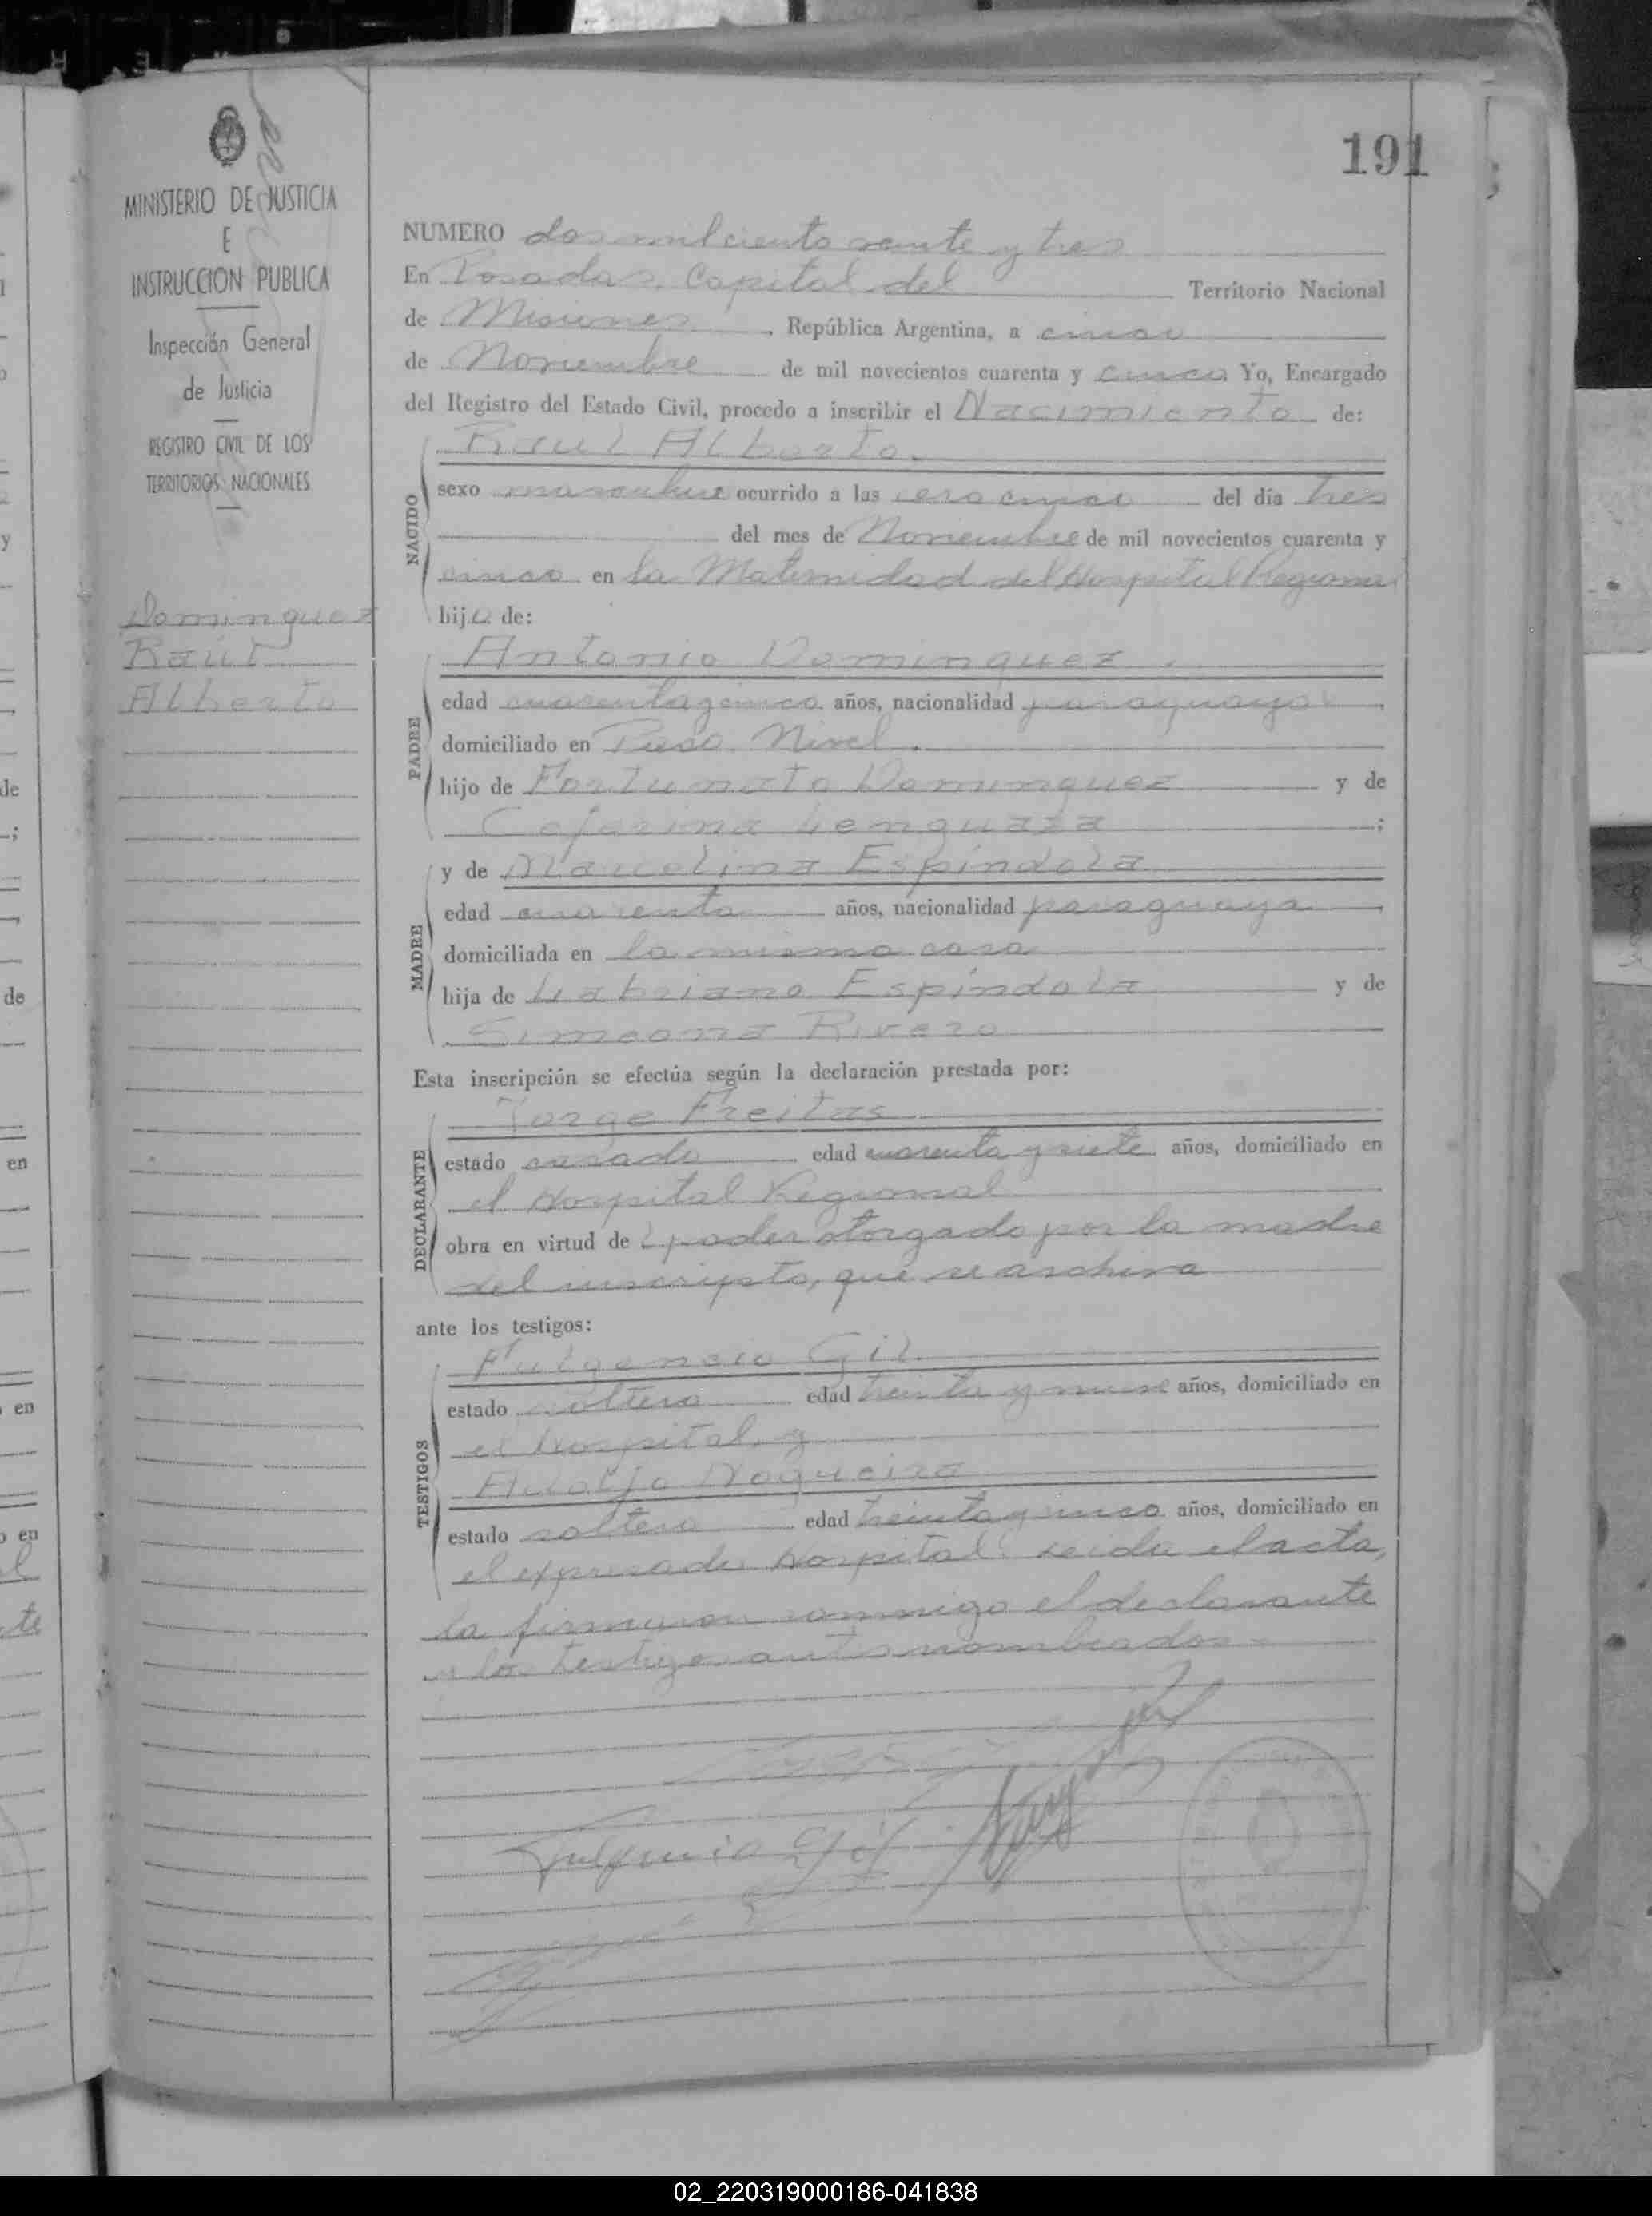 191
MINISTERIO DE JUSTICIA
E
INSTRUCCION PUBLICA
Inspección General
de Justicia
REGISTRO CIVIL DE LOS
TERRITORIOS NACIONALES
Dominguez
Raúl
Alberto
NUMERO dos mil ciento veinte y tres
En Posadas, Capital del Territorio Nacional
de Misiones, República Argentina, a cinco
de Noviembre de mil novecientos cuarenta y cinco Yo, Encargado
del Registro del Estado Civil, procedo a inscribir el Nacimiento de:
Raul Alberto.
NACIDO
sexo masculino ocurrido a las cero cinco del día tres
del mes de Noviembre de mil novecientos cuarenta y
cinco en la Maternidad del Hospital Regional
hijo de:
Antonio Dominguez.
PADRE
edad cuarenta y cinco años, nacionalidad paraguayo,
domiciliado en Paso Nivel.
hijo de Fortunato Dominguez y de
Ceferina ;
y de Marcelina Espíndola
MADRE
edad cuarenta años, nacionalidad paraguaya,
domiciliada en la misma casa
hija de Espíndola y de
Simeona Rivero
Esta inscripción se efectúa según la declaración prestada por:
Jorge Freitas
DECLARANTE
estado casado edad cuarenta y siete años, domiciliado en
el Hospital Regional
obra en virtud de poder otorgado por la madre
del inscripto, que se archiva
ante los testigos:
Fulgencio Gil
TESTIGOS
estado soltero edad treinta y nueve años, domiciliado en
el Hospital, y
Adolfo Nogueira
estado soltero edad treinta y cinco años, domiciliado en
el expresado Hospital. Leida el acta,
la firmaron conmigo el declarante
y los testigos antes nombrados
Fulgencio Gil
de
;
de
en
en
en
te
02_220319000186-041838